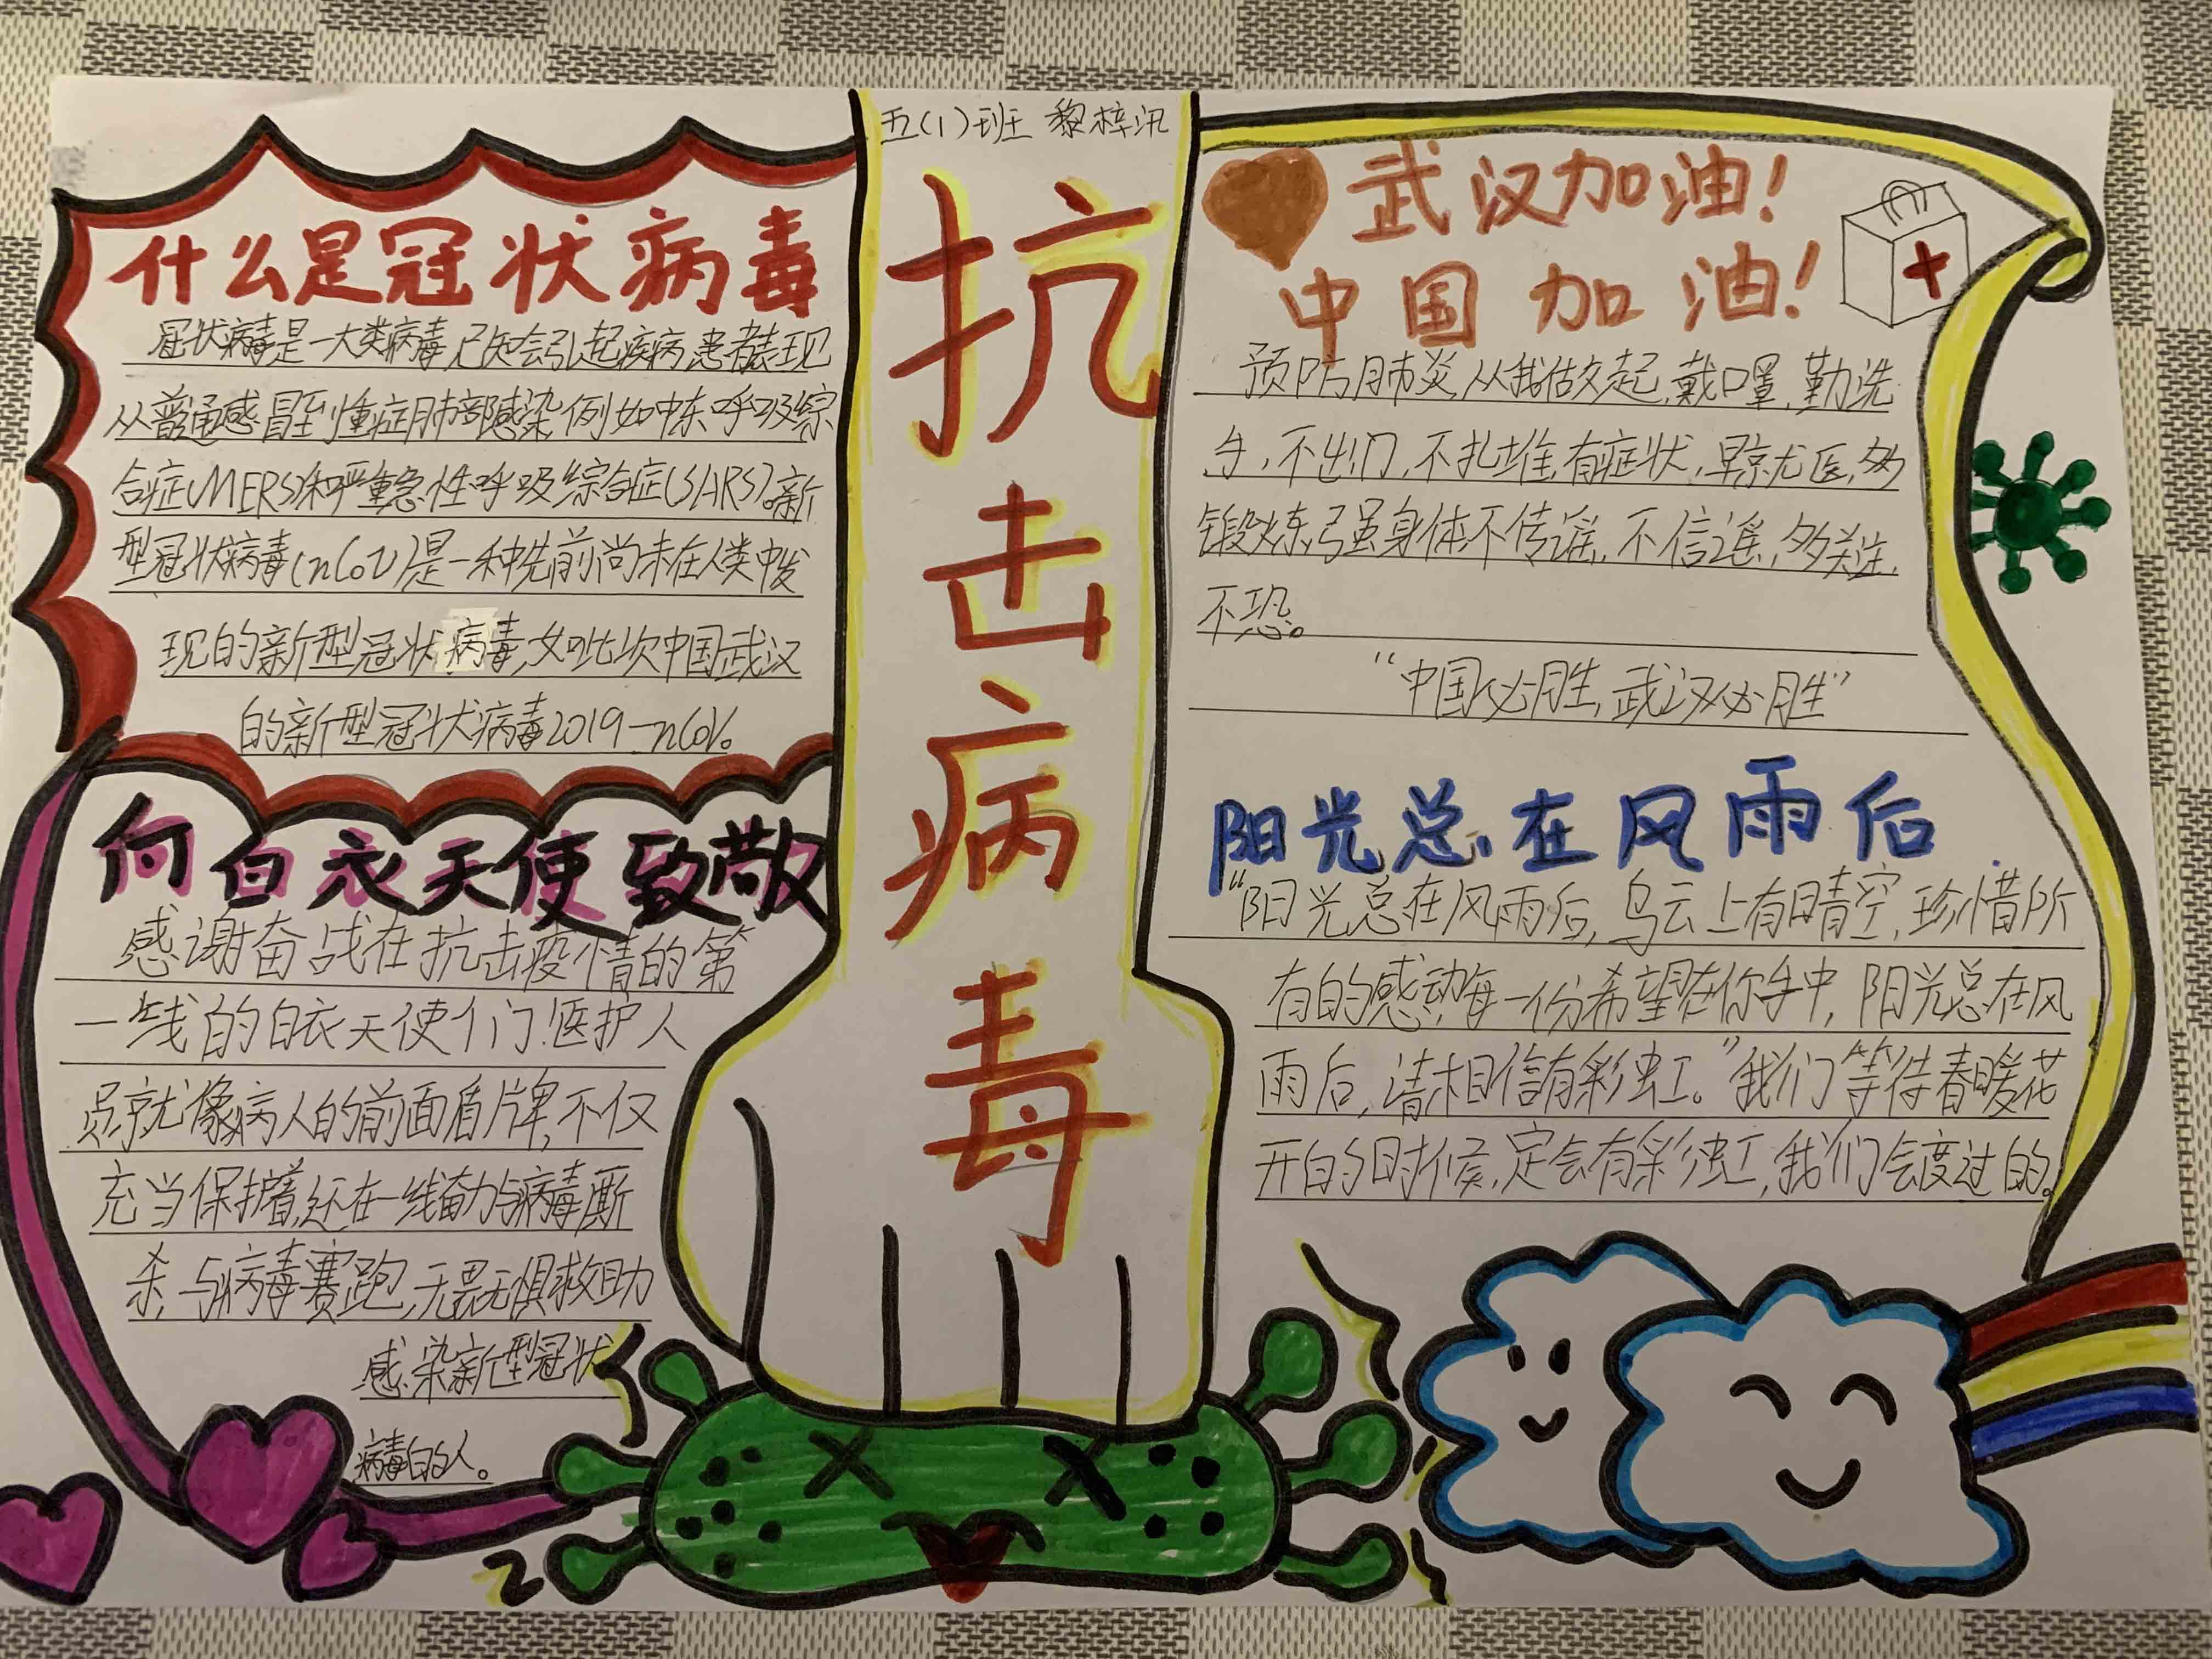 五(1)班 黎梓汛
抗击病毒
什么是冠状病毒
冠状病毒是一大类病毒已知会引起疾病患者表现
从普通感冒到重症肺部感染例如中东呼吸综
合症(MERS)和严重急性呼吸综合症(SARS)。新
型冠状病毒(nCoV)是一种先前尚未在人类中发
现的新型冠状病毒,如此次中国武汉
的新型冠状病毒2019-nCoV。
向白衣天使致敬
感谢奋战在抗击疫情的第
一线的白衣天使们!医护人
员就像病人的前面盾牌,不仅
充当保护着,还在一线奋力与病毒厮
杀,与病毒赛跑,无畏无惧救助
感染新型冠状
病毒的人。
武汉加油!
中国加油!
预防肺炎从我做起,戴口罩,勤洗
手,不出门,不扎堆,有症状,早就医,多
锻炼,强身体不传谣,不信谣,多关注,
不恐。
“中国必胜,武汉必胜”
阳光总在风雨后
“阳光总在风雨后,乌云上有晴空,珍惜所
有的感动每一份希望在你手中,阳光总在风
雨后,请相信有彩虹。”我们等待春暖花
开的时候,定会有彩虹,我们会度过的。